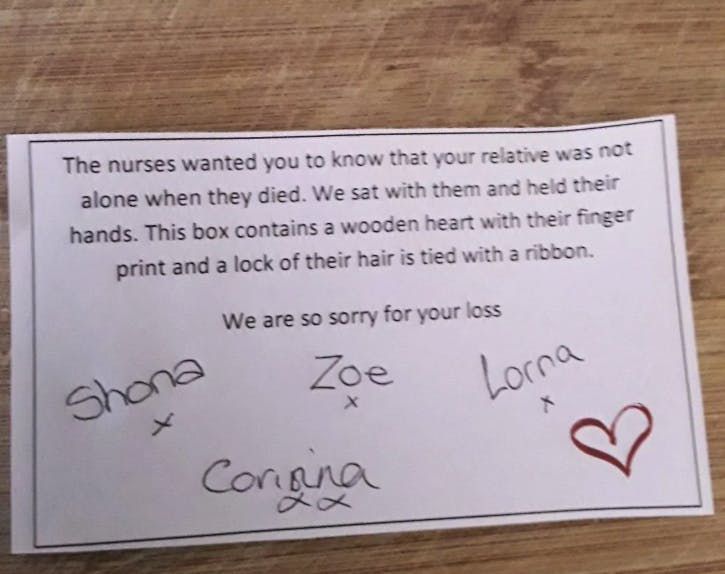 The nurses wanted you to know that your relative was not
alone when they died. We sat with them and held their
hands. This box contains a wooden heart with their finger
print and a lock of their hair is tied with a ribbon.
We are so sorry for your loss
Shona Zoe Lorna
x x x
Corinna
x x